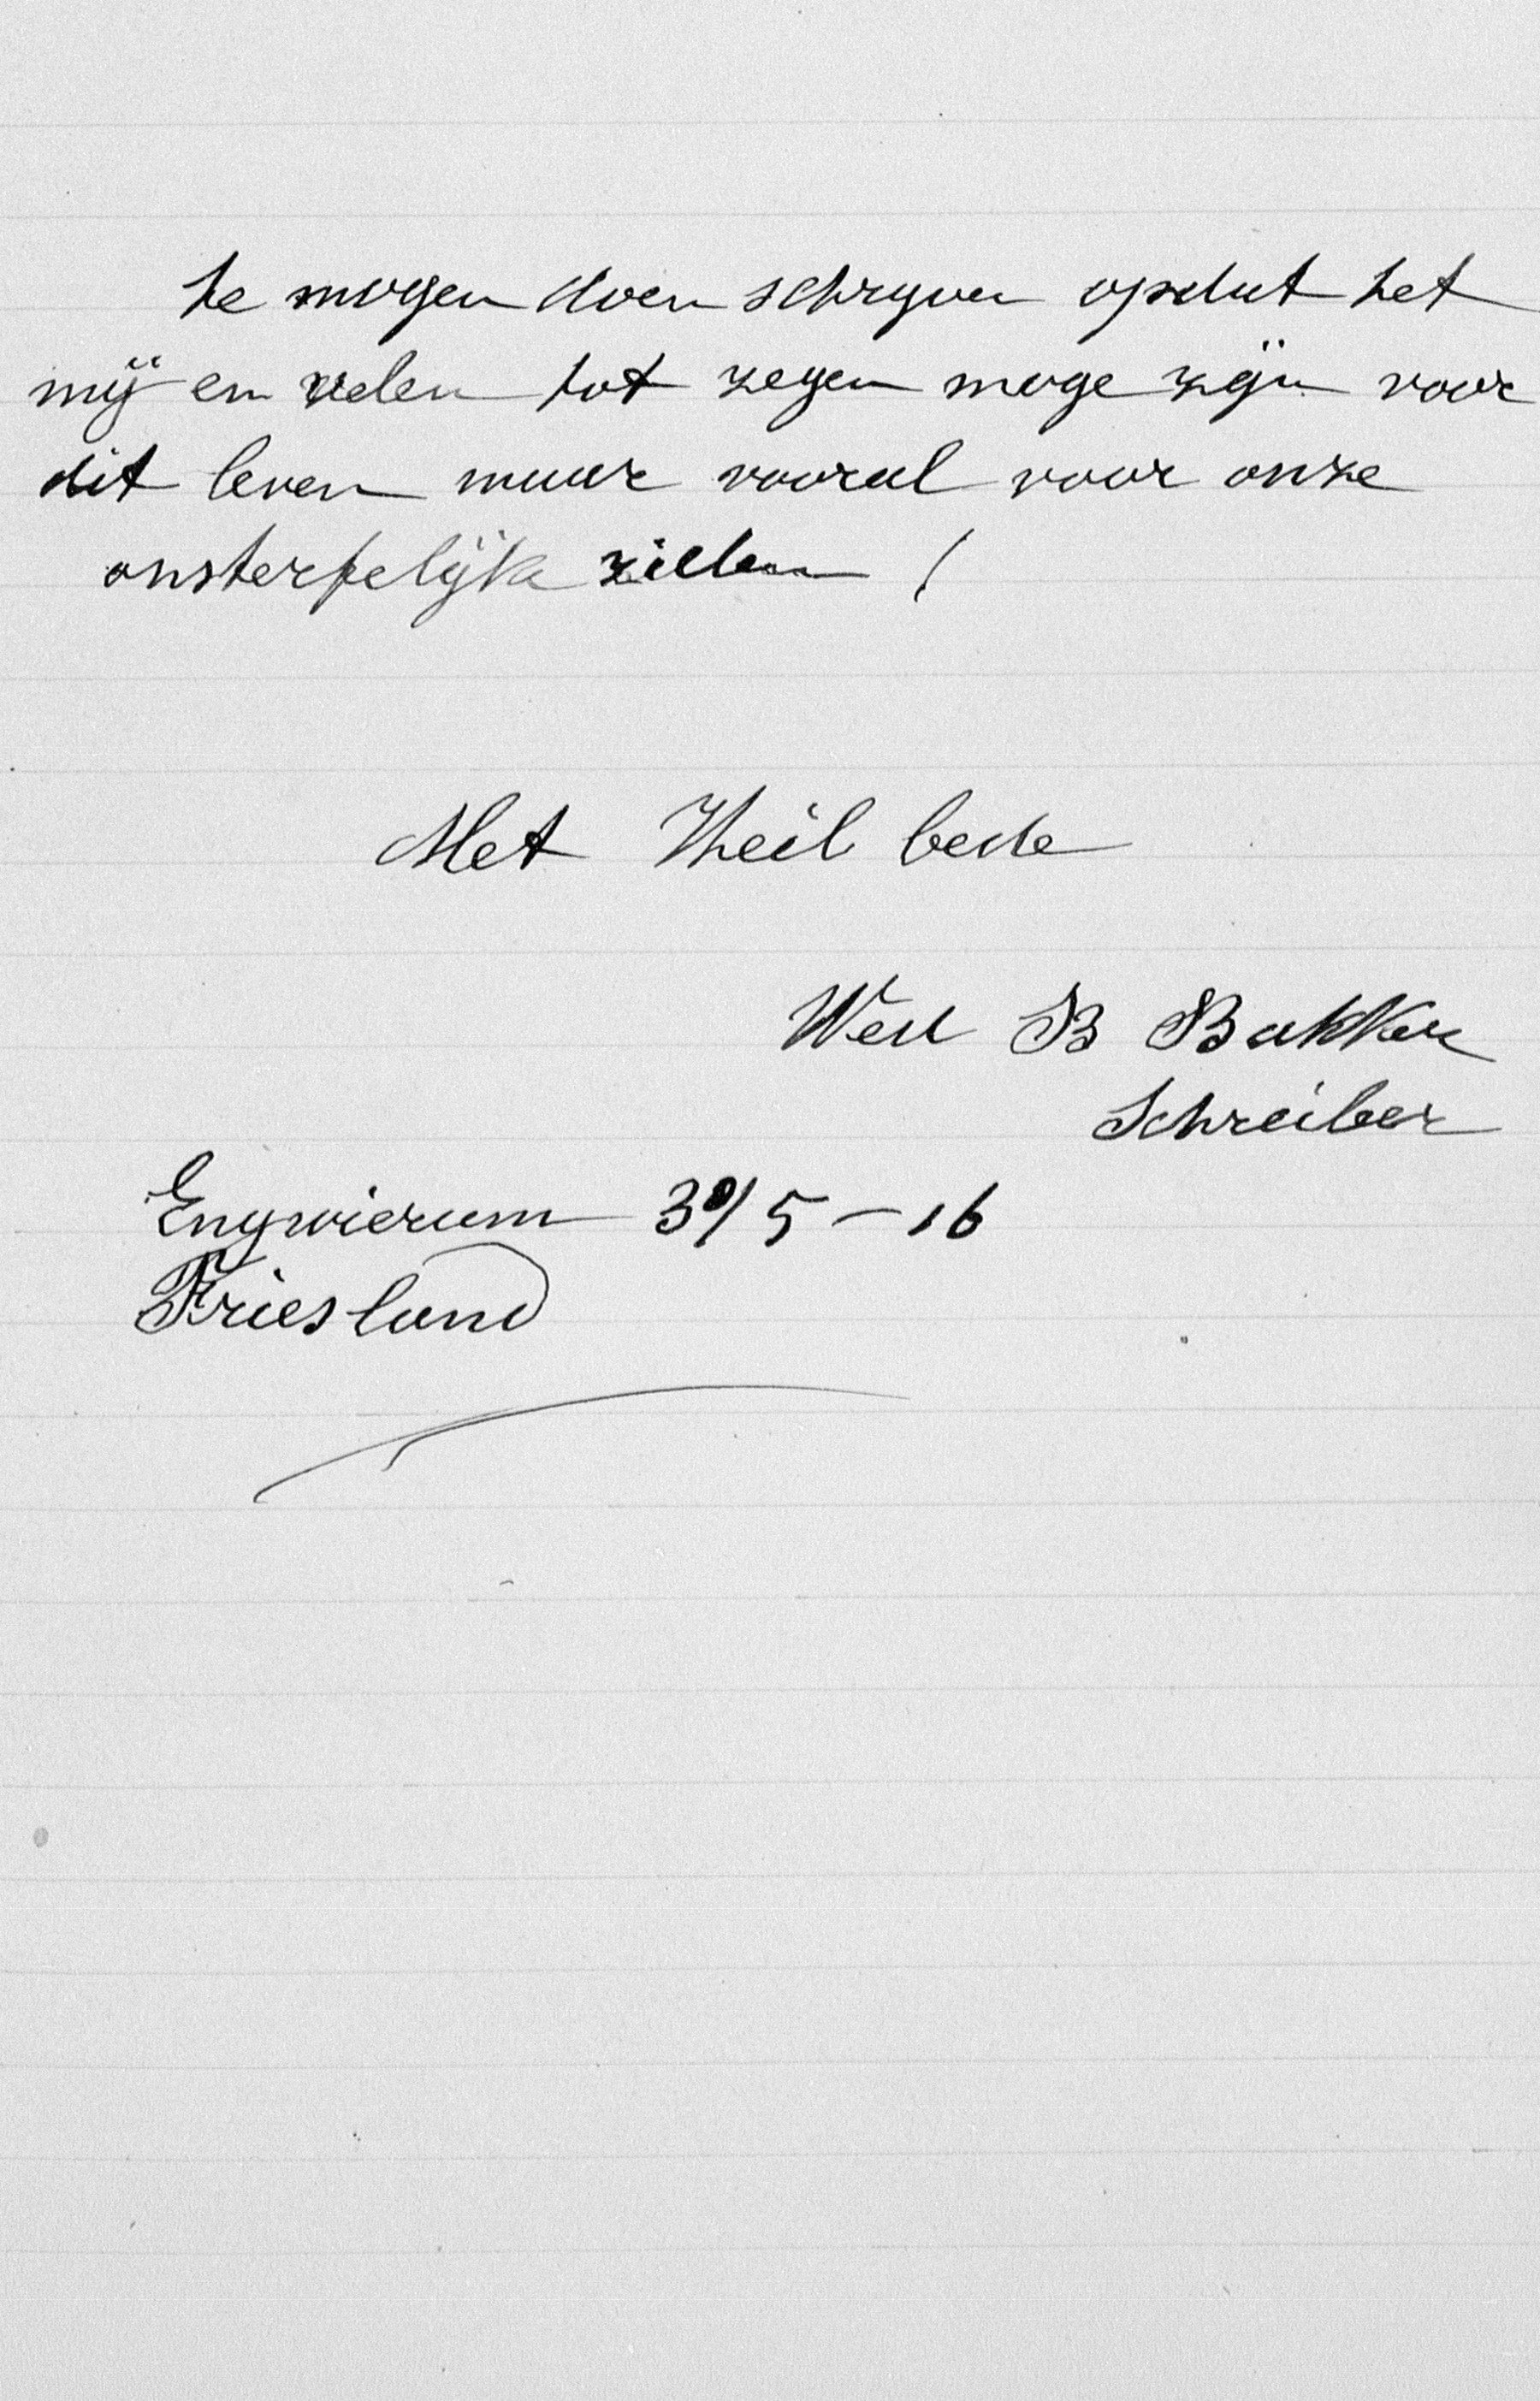 te mogen doen schryven opdat het
mij en velen tot zegen moge zijn voor
dit leven maar vooral voor onze
onsterfelijke zielen !
Met Heil bede
Wed B Bakker
Schreiber
Engwierum 30/5-16
Friesland